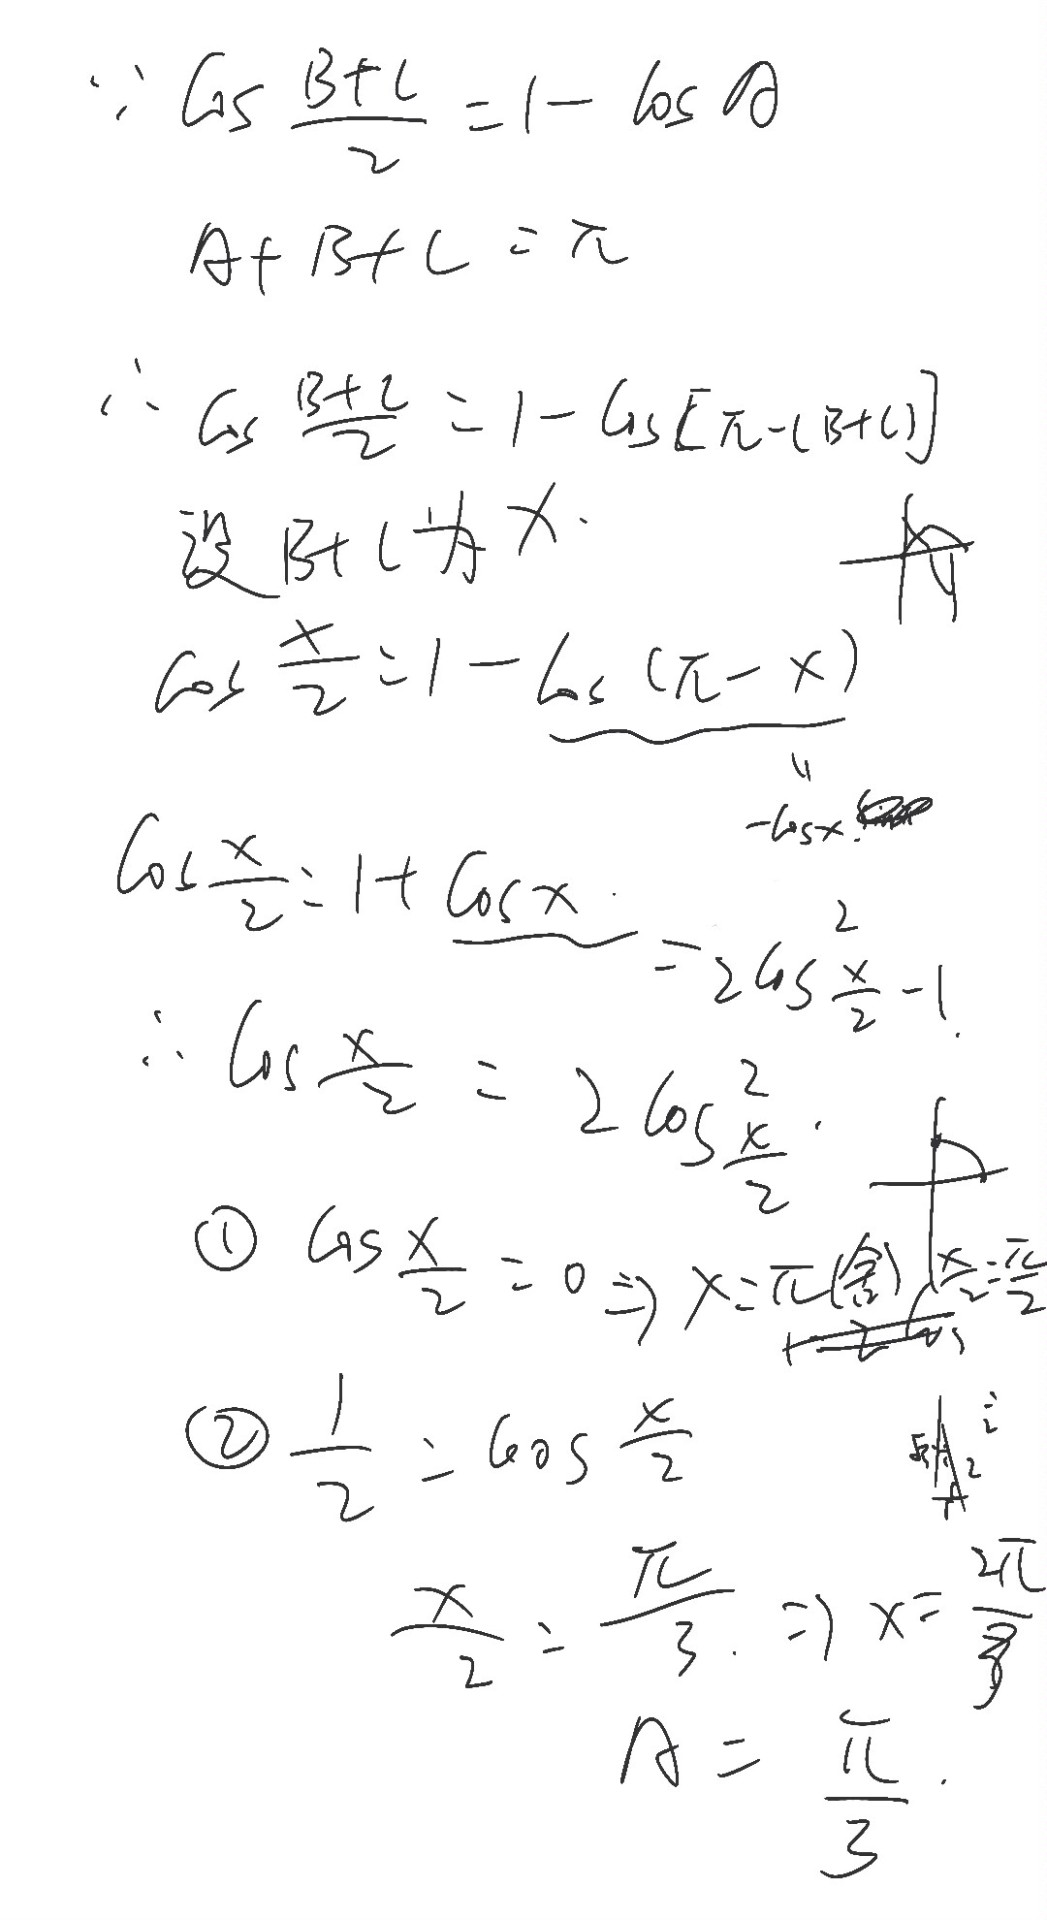 ∵ cos (B+C)/2 = 1 - cos A
A + B + C = π
∴ cos (B+C)/2 = 1 - cos [π-(B+C)]
设 B+C 为 x.
cos x/2 = 1 - cos (π - x)
-cosx.
cos x/2 = 1 + cos x.
= 2cos² x/2 - 1.
∴ cos x/2 = 2 cos² x/2.
① cos x/2 = 0 ⇒ x = π (舍) x/2 = π/2
② 1/2 = cos x/2
x/2 = π/3. ⇒ x = 2π/3
A = π/3.